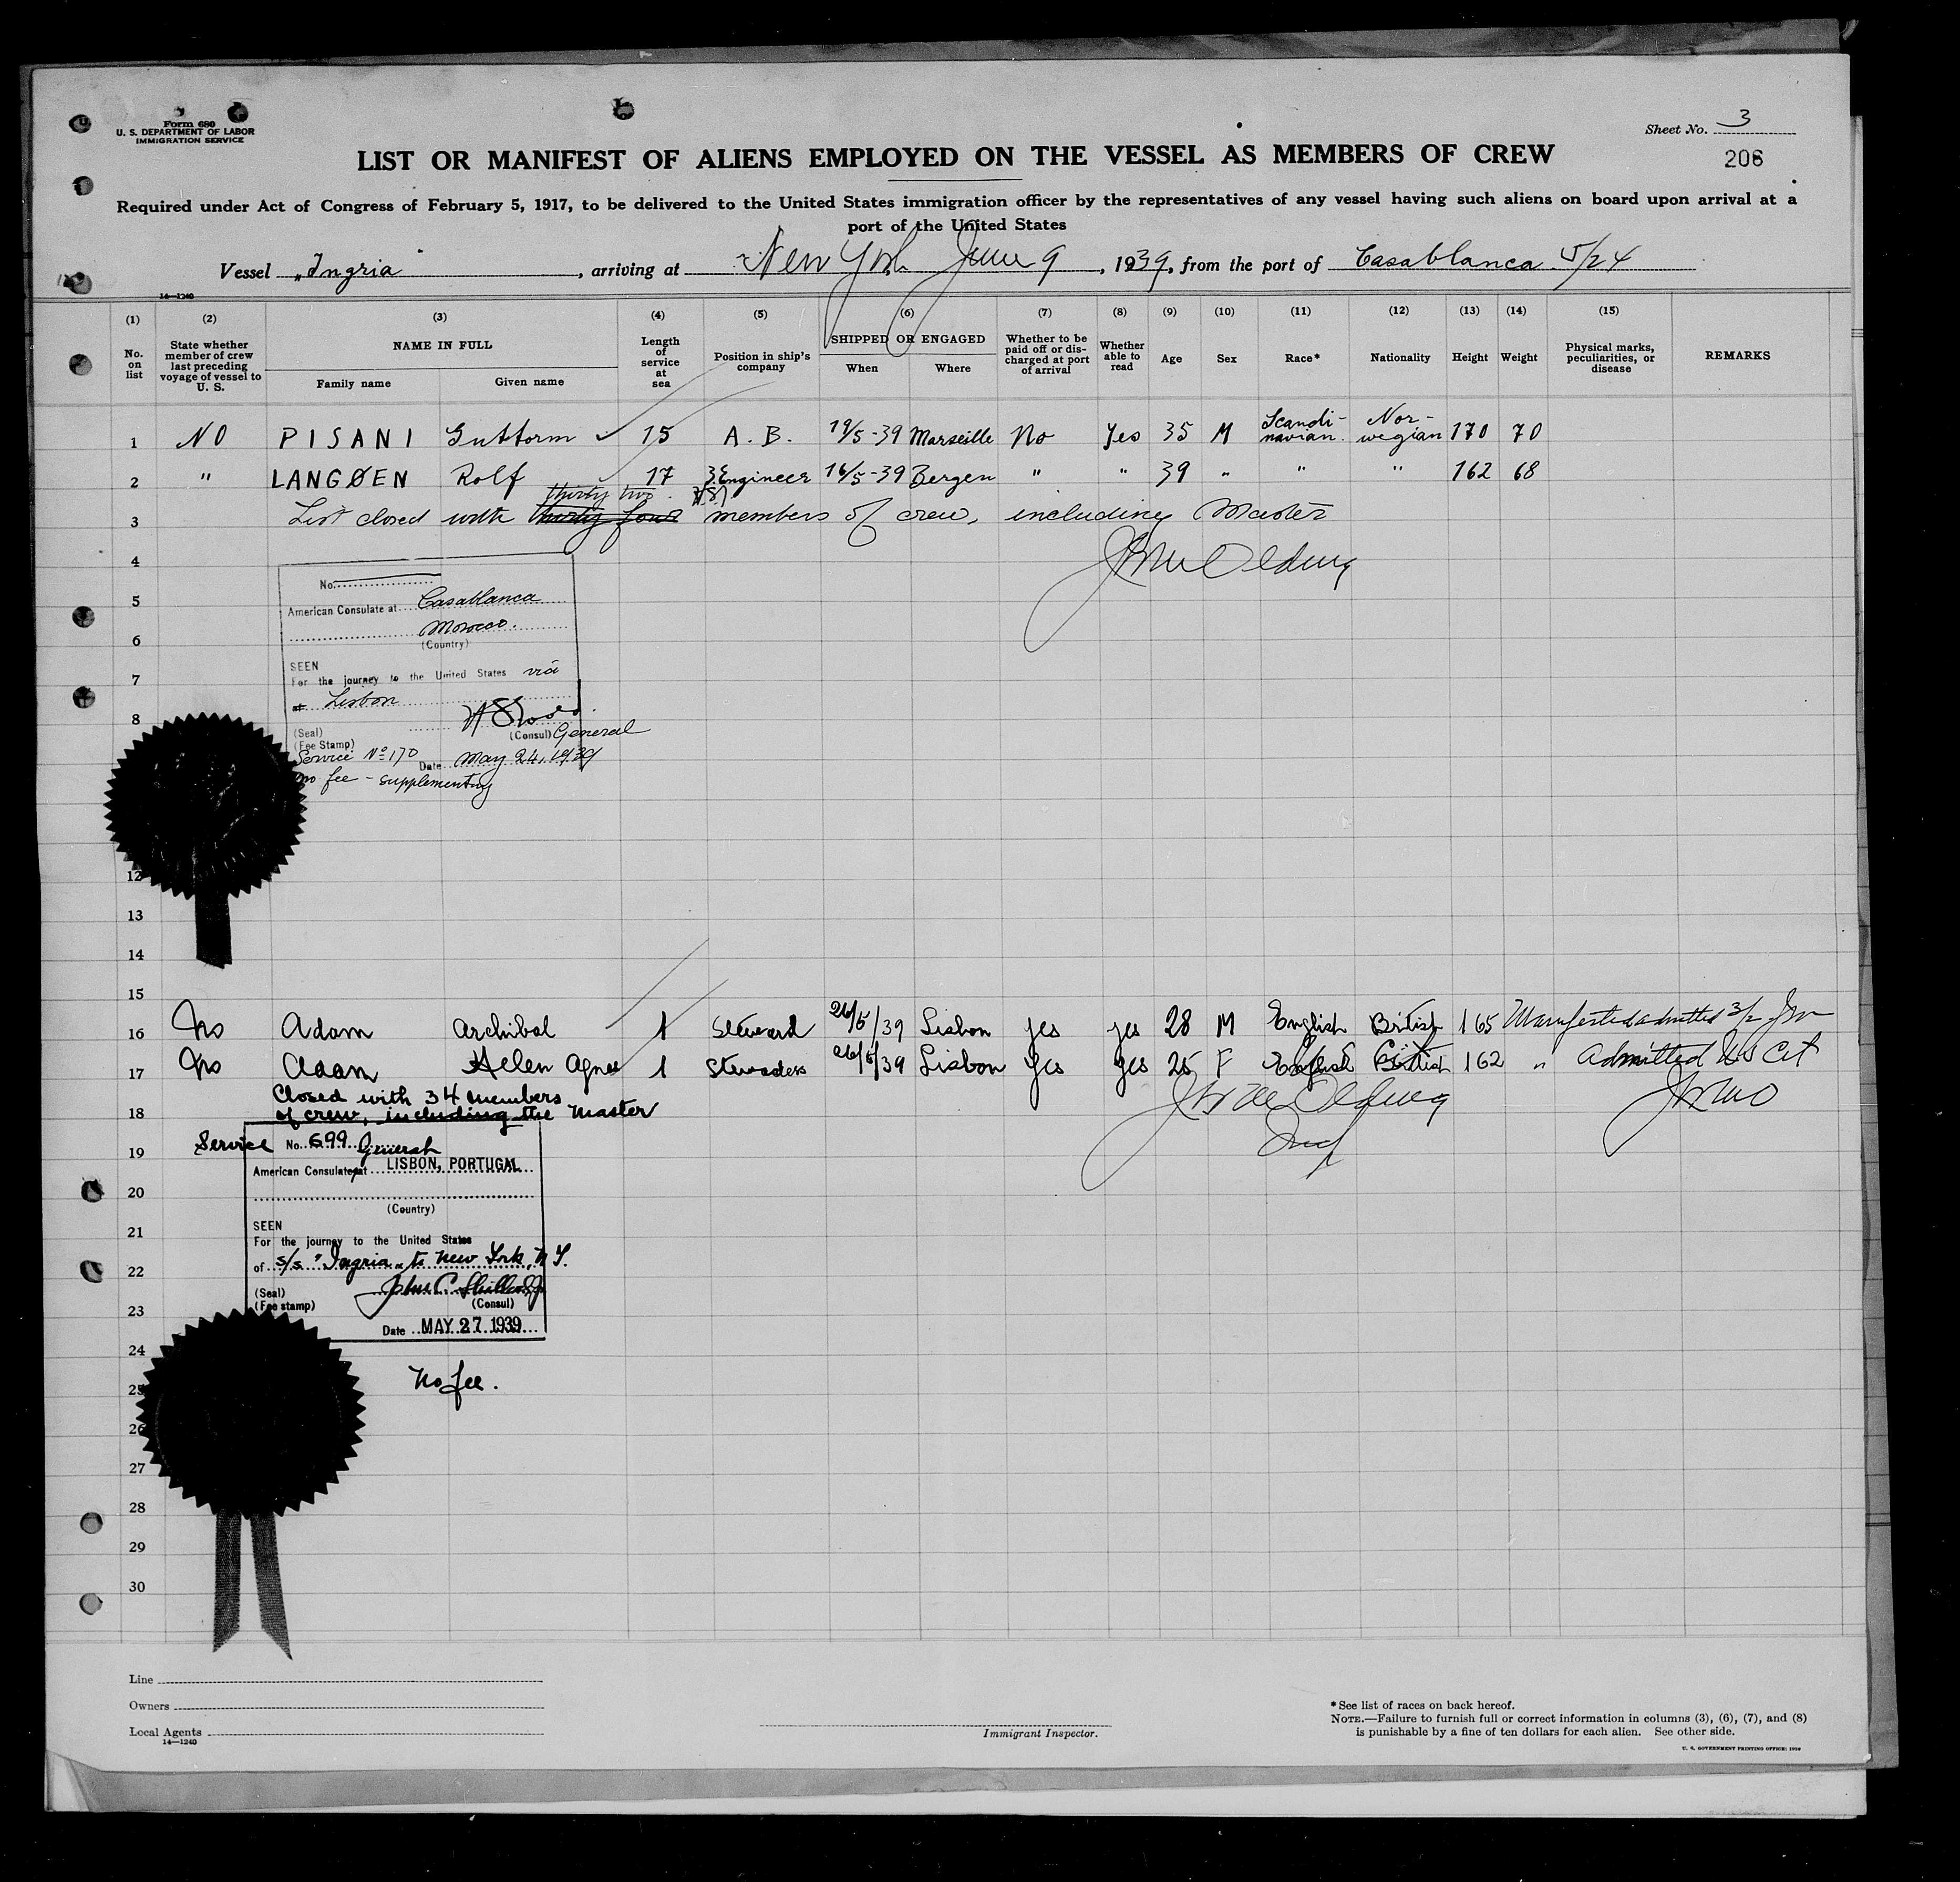 Form 680
U. S. DEPARTMENT OF LABOR
IMMIGRATION SERVICE
Sheet No. 3
206
LIST OR MANIFEST OF ALIENS EMPLOYED ON THE VESSEL AS MEMBERS OF CREW
Required under Act of Congress of February 5, 1917, to be delivered to the United States immigration officer by the representatives of any vessel having such aliens on board upon arrival at a
port of the United States
Vessel "Ingria", arriving at New York June 9, 1939, from the port of Casablanca 5/24
14—1240
(1) (2) (3) (4) (5) (6) (7) (8) (9) (10) (11) (12) (13) (14) (15)
No. on list
State whether member of crew last preceding voyage of vessel to U. S.
NAME IN FULL
Family name Given name
Length of service at sea
Position in ship's company
SHIPPED OR ENGAGED
When Where
Whether to be paid off or discharged at port of arrival
Whether able to read
Age
Sex
Race*
Nationality
Height
Weight
Physical marks, peculiarities, or disease
REMARKS
1 NO PISANI Guttorm 15 A. B. 19/5-39 Marseille No Yes 35 M Scandi-navian Nor-wegian 170 70
2 " LANGØEN Rolf 17 3.Engineer 16/5-39 Bergen " " 39 " " " 162 68
thirty two
3 List closed with thirty four members of crew, including Master
4
No.
5 American Consulate at Casablanca
6 Morocco.
(Country)
SEEN
7 For the journey to the United States via
at Lisbon
8
(Seal) (Consul) General
(Fee Stamp)
Service Nº 170 Date May 24, 1939
no fee - supplementing
12
13
14
15
16 No Adam Archibal 1 Steward 26/5/39 Lisbon yes yes 28 M English British 165 Manifested admitted 3/2
17 No Adam Helen Agnes 1 Stewardess 26/5/39 Lisbon Yes yes 25 F English British 162 " Admitted US Cit
Closed with 34 members
18 of crew, including the Master
Service No. 699 General
19 American Consulate at LISBON, PORTUGAL
20
(Country)
21 SEEN
For the journey to the United States
22 of s/s "Ingria" to New York, N.Y.
(Seal)
23 (Fee stamp) (Consul)
Date MAY 27 1939
24
25 No fee.
26
27
28
29
30
Line
Owners
Local Agents
14—1240
Immigrant Inspector.
*See list of races on back hereof.
NOTE.—Failure to furnish full or correct information in columns (3), (6), (7), and (8)
is punishable by a fine of ten dollars for each alien. See other side.
U. S. GOVERNMENT PRINTING OFFICE: 1939